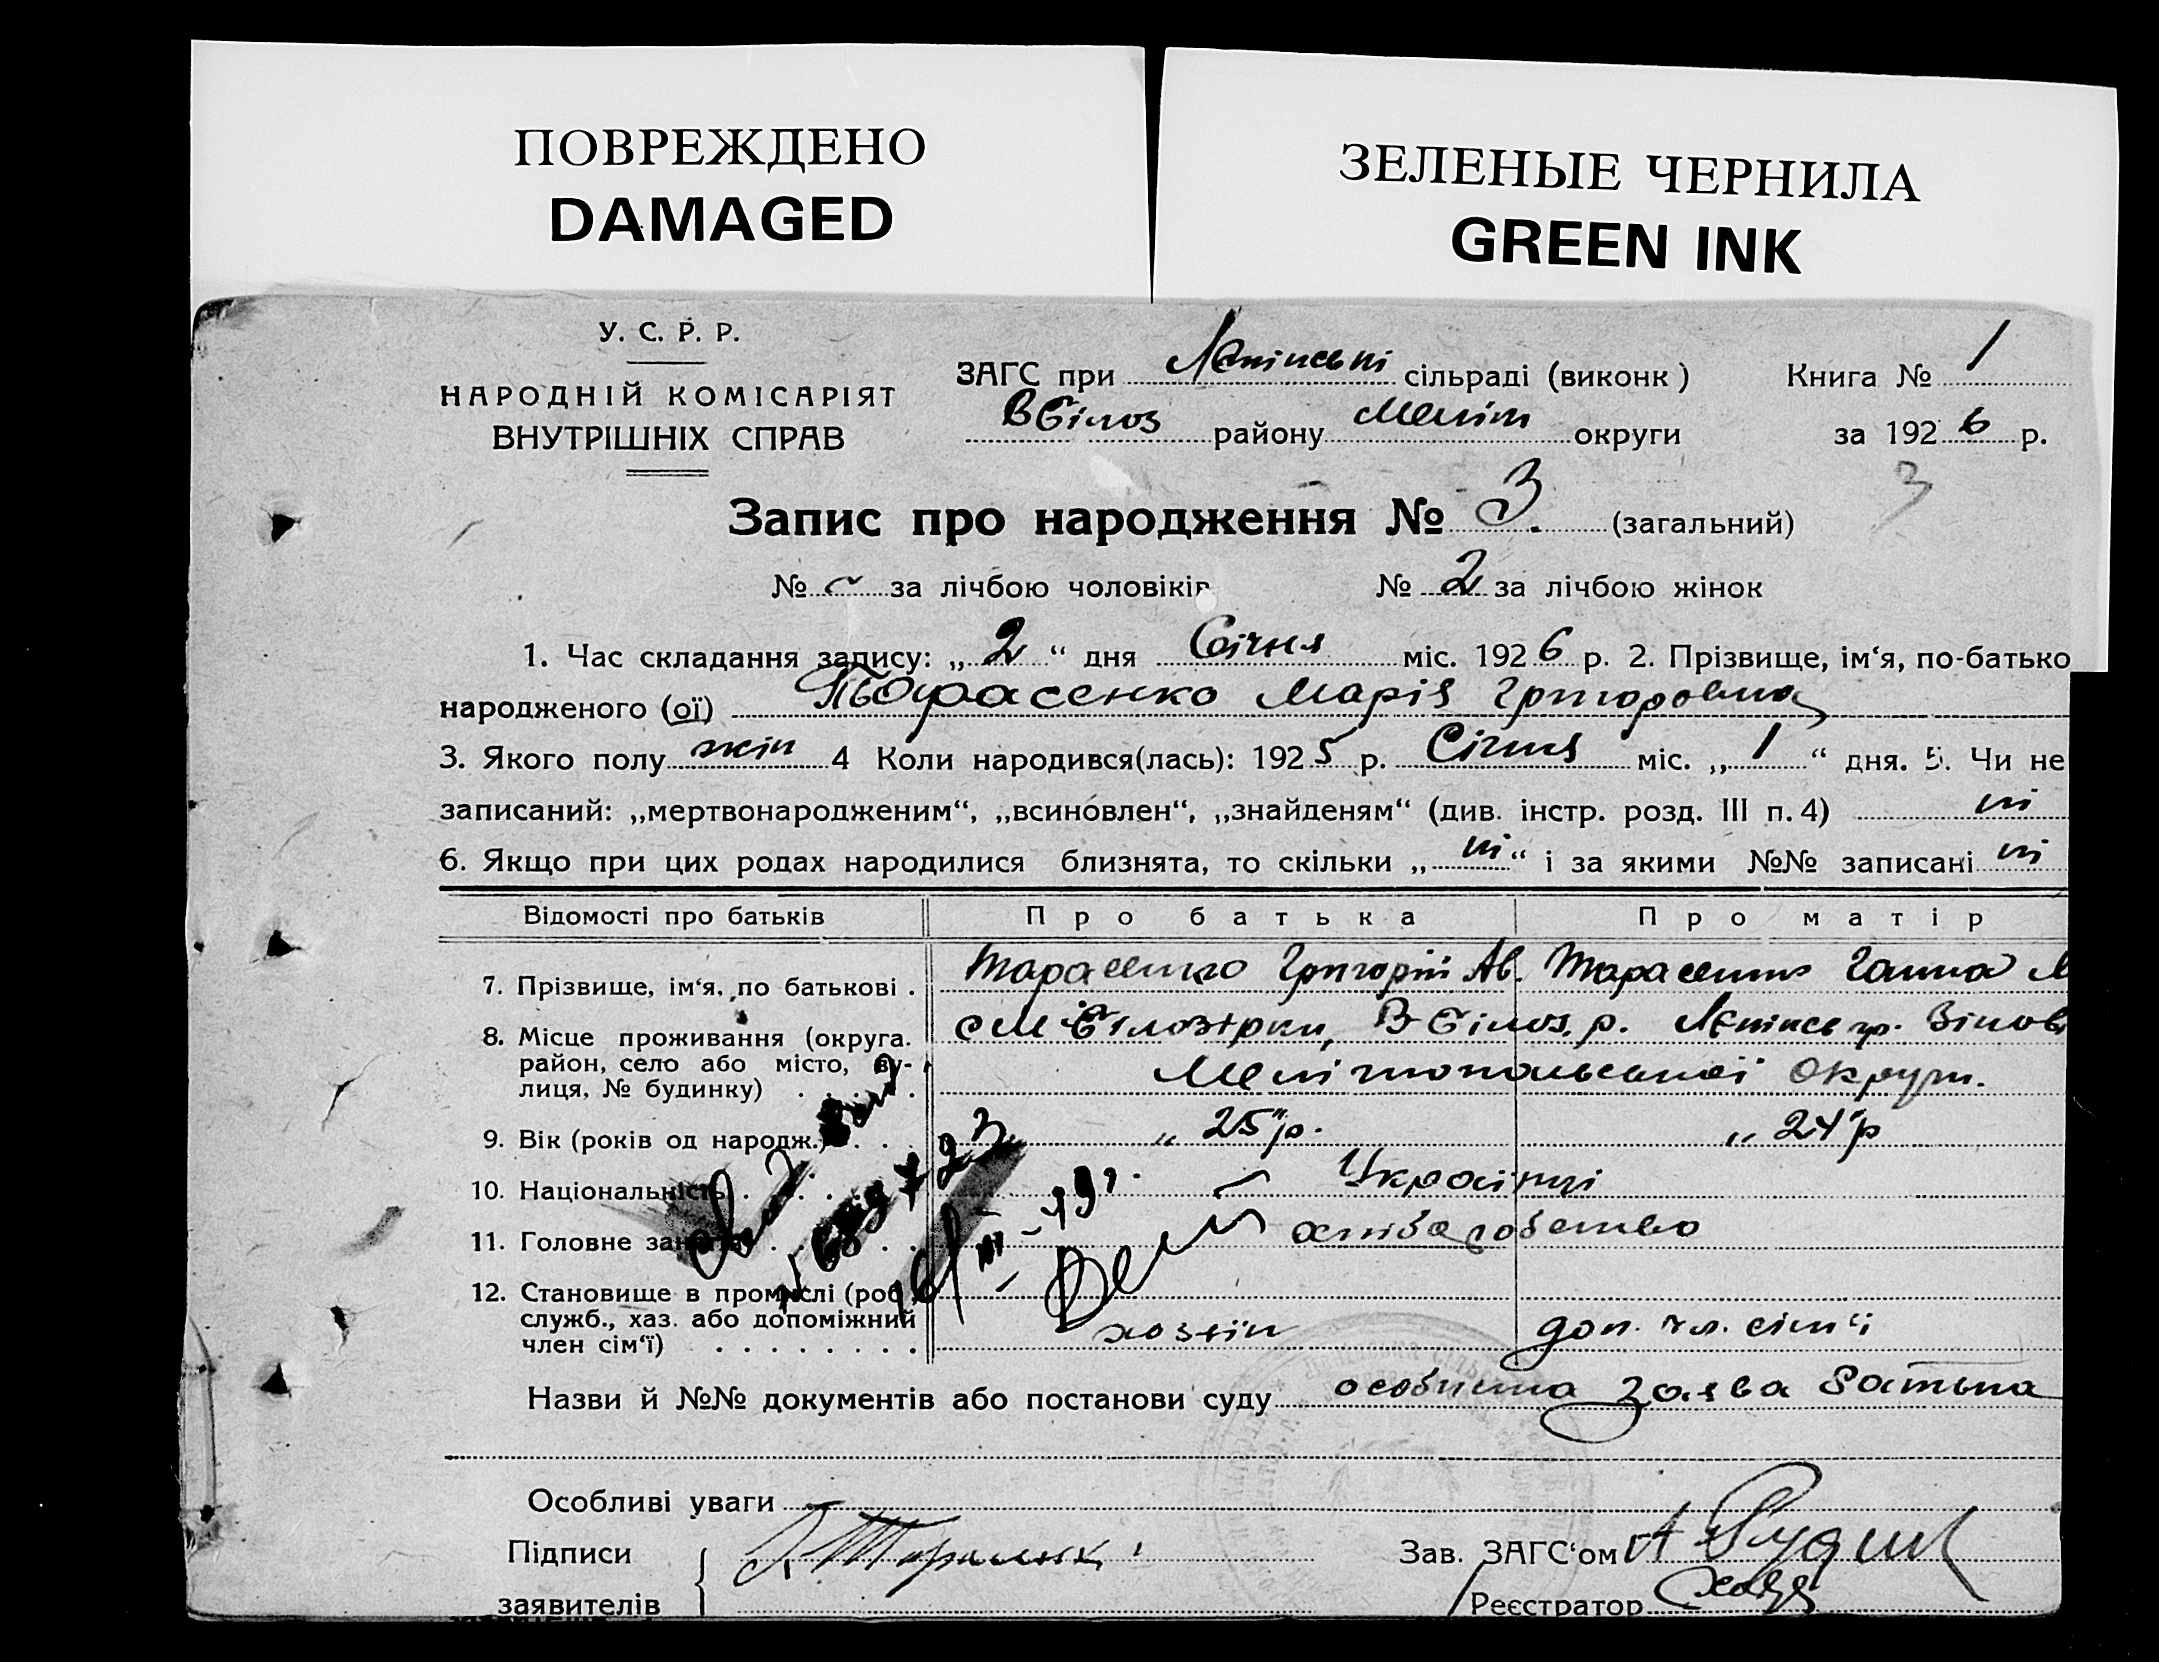 ПОВРЕЖДЕНО
DAMAGED
ЗЕЛЕНЫЕ ЧЕРНИЛА
GREEN INK
У. С. Р. Р.
НАРОДНІЙ КОМІСАРІЯТ
ВНУТРІШНІХ СПРАВ
ЗАГС при сільраді (виконк) Книга № 1
В Білоз району Меліт округи за 1926 р.
3
Запис про народження № 3. (загальний)
№ за лічбою чоловіків № 2 за лічбою жінок
1. Час складання запису: „2“ дня Січня міс. 1926 р. 2. Прізвище, ім‘я, по-батькові
народженого (ої) Тарасенко Марія Григоровна
3. Якого полу жін 4 Коли народився(лась): 1925 р. Січня міс. „1“ дня. 5. Чи не
записаний: „мертвонародженим“, „всиновлен“, „знайденям“ (див. інстр. розд. III п. 4) ні
6. Якщо при цих родах народилися близнята, то скільки „ні“ і за якими №№ записані ні
Відомості про батьків Про батька Про матір
7. Прізвище, ім‘я, по батькові . Тарасенко Григорій Ав. Тарасенко Ганна М
8. Місце проживання (округа. район, село або місто, ву-
лиця, № будинку) В Білоз. р.
Мелітопольської Округи.
9. Вік (років од народж.) . . . „25“ р. „24“ р
10. Національність . . . . Українці
11. Головне . . . . хліборобство
12. Становище в промислі (роб.,
служб., хаз. або допоміжний
член сім‘ї) . . . . . . . . хозяїн доп. чл. сім‘ї
Назви й №№ документів або постанови суду особиста заява батька
Особливі уваги
Підписи Зав. ЗАГС‘ом
заявителів Реєстратор